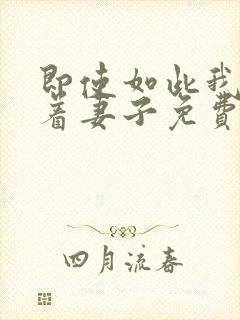 即使如此我
着妻子免费
四月流春